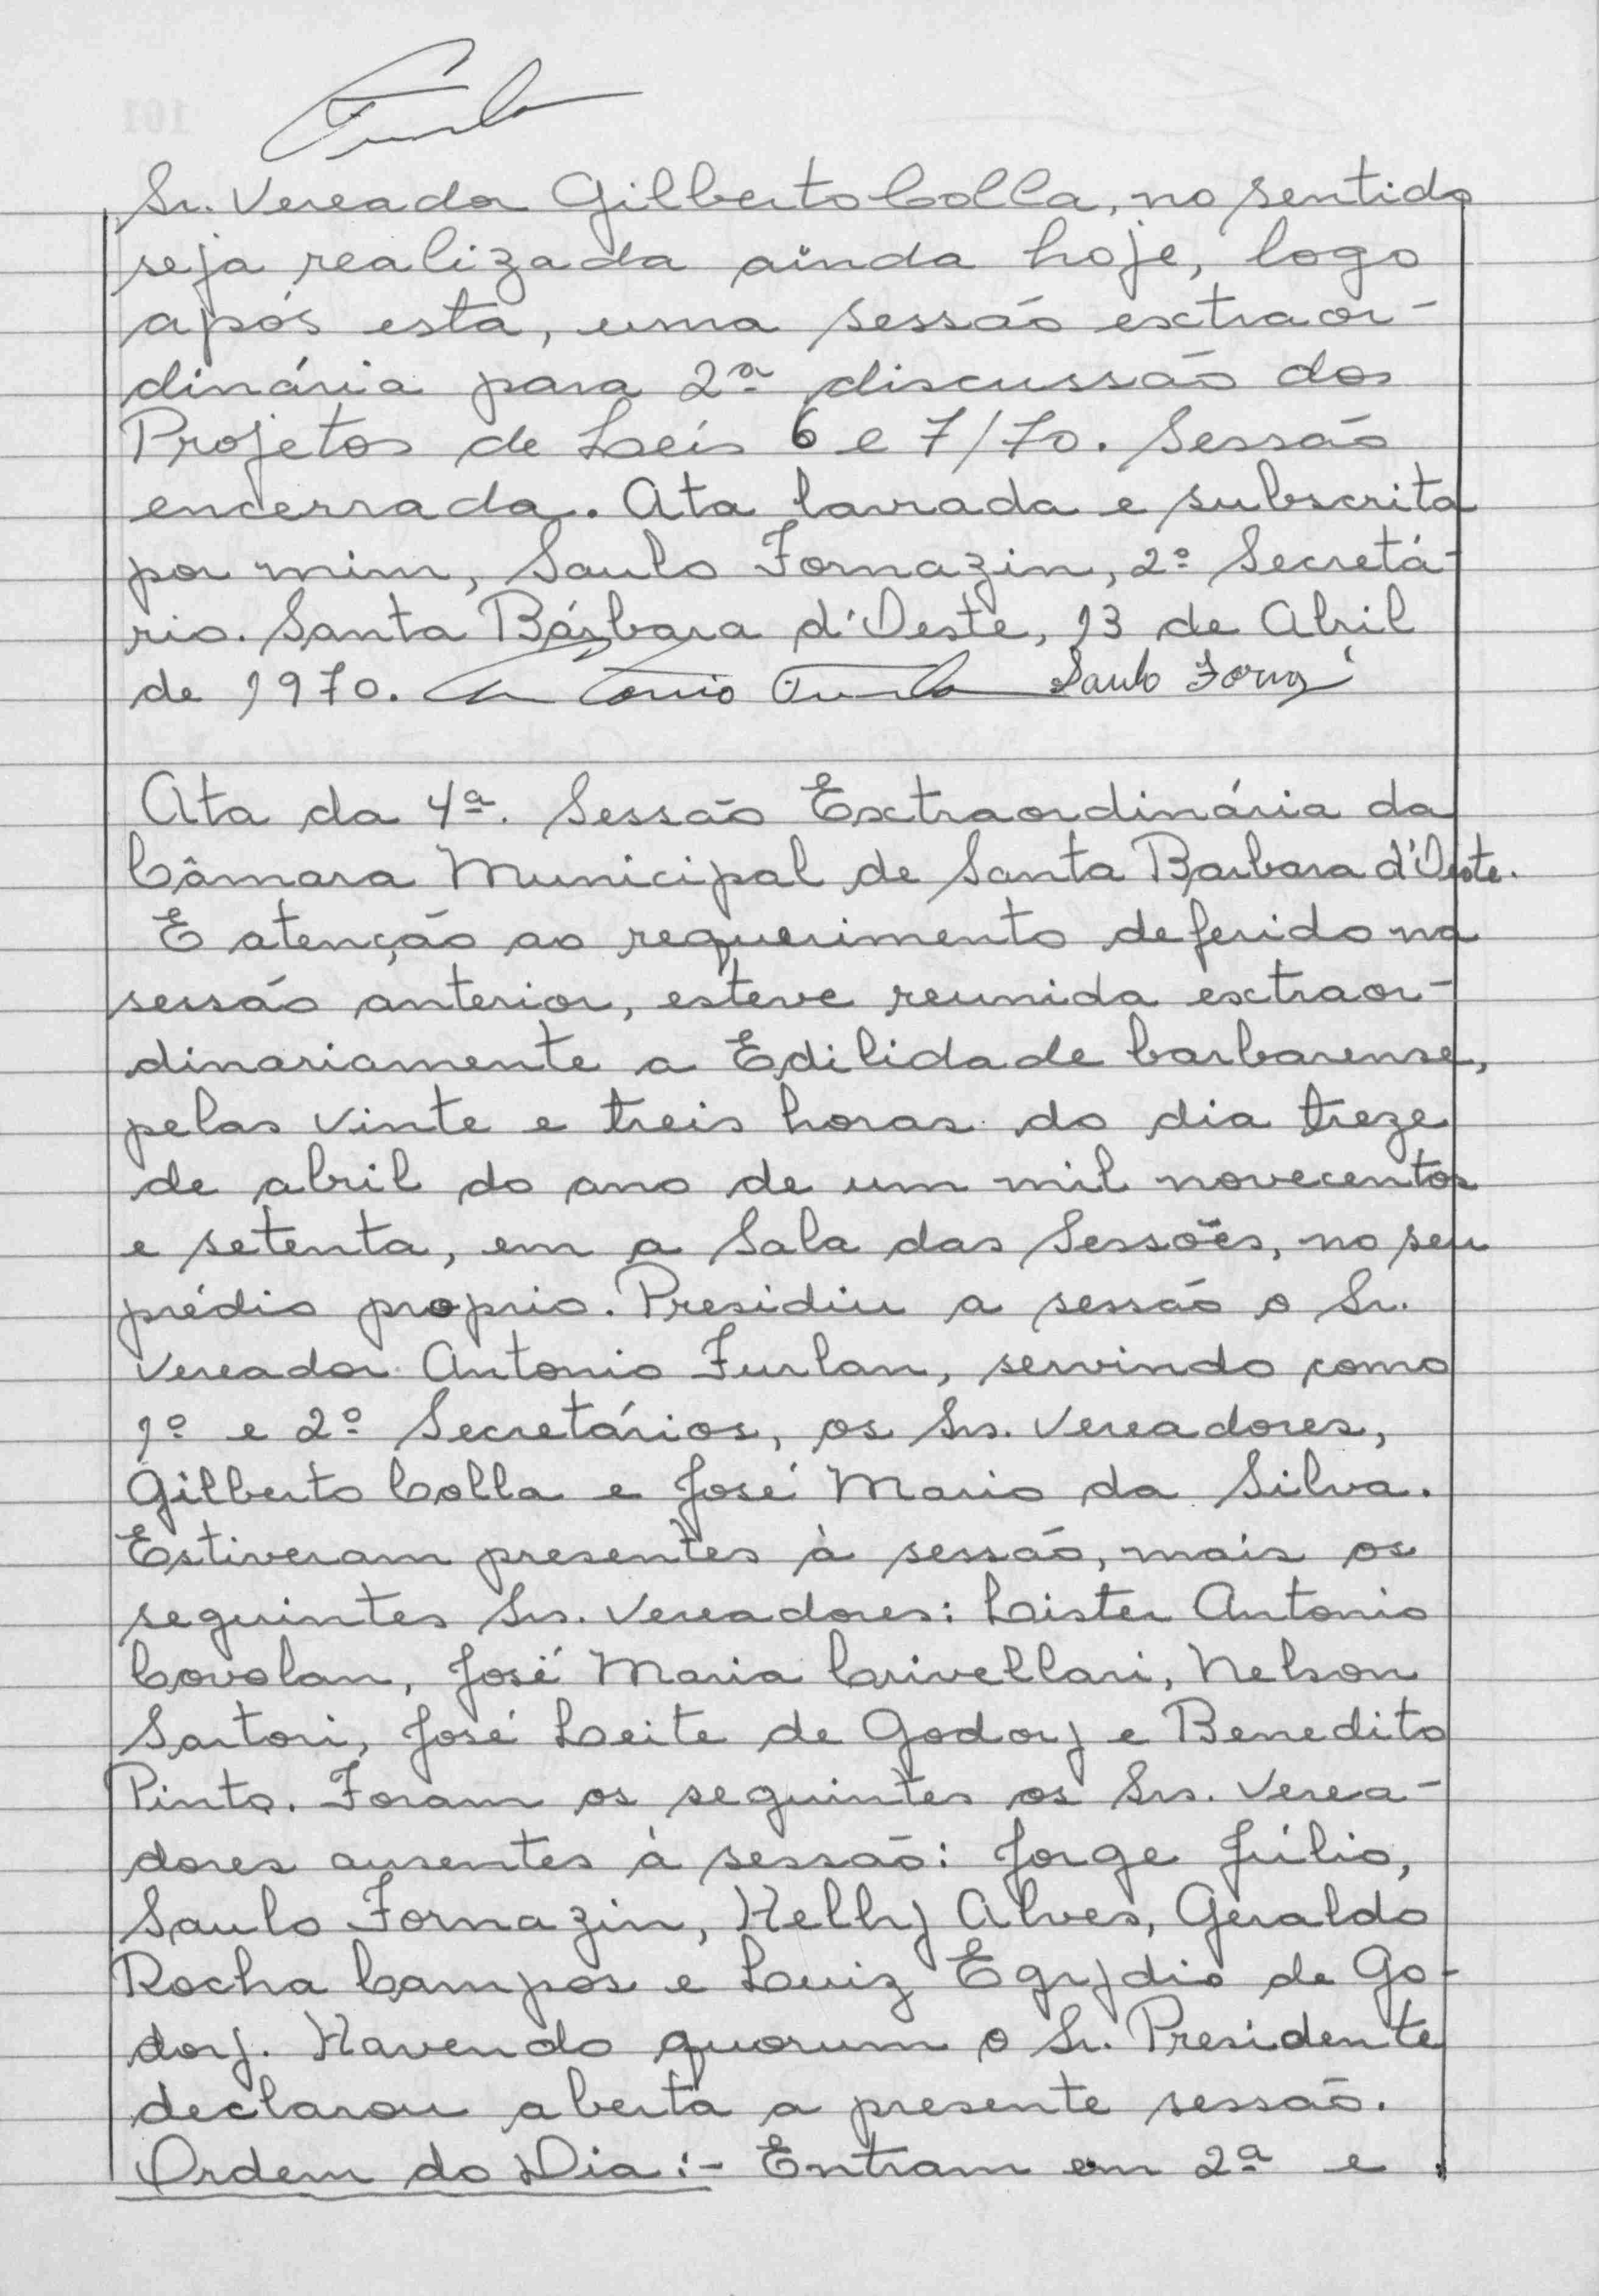 Furlan
Sr. Vereador Gilberto Colla, no sentido
seja realizada ainda hoje, logo
após esta, uma sessão extraor-
dinária para 2ª discussão dos
Projetos de Leis 6 e 7/70. Sessão
encerrada. Ata lavrada e subscrita
por mim, Saulo Fornazin, 2º Secretá-
rio. Santa Bárbara d'Oeste, 13 de Abril
de 1970. Antonio Furlan Saulo Forna
Ata da 4ª. Sessão Extraordinária da
Câmara Municipal de Santa Barbara d'Oeste.
E atenção ao requerimento deferido na
sessão anterior, esteve reunida extraor-
dinariamente a Edilidade barbarense,
pelas vinte e treis horas do dia treze
de abril do ano de um mil novecentos
e setenta, em a Sala das Sessões, no seu
prédio proprio. Presidiu a sessão o Sr.
Vereador Antonio Furlan, servindo como
1º e 2º Secretários, os Srs. Vereadores,
Gilberto Colla e José Mario da Silva.
Estiveram presentes à sessão, mais os
seguintes Srs. Vereadores: Lister Antonio
Covolan, José Maria Crivellari, Nelson
Sartori, José Leite de Godoy e Benedito
Pinto. Foram os seguintes os Srs. Verea-
dores ausentes à sessão: Jorge Júlio,
Saulo Fornazin, Kelly Alves, Geraldo
Rocha Campos e Luiz Egydio de Go-
doy. Havendo quorum o Sr. Presidente
declarou aberta a presente sessão.
Ordem do Dia:- Entram em 2ª e